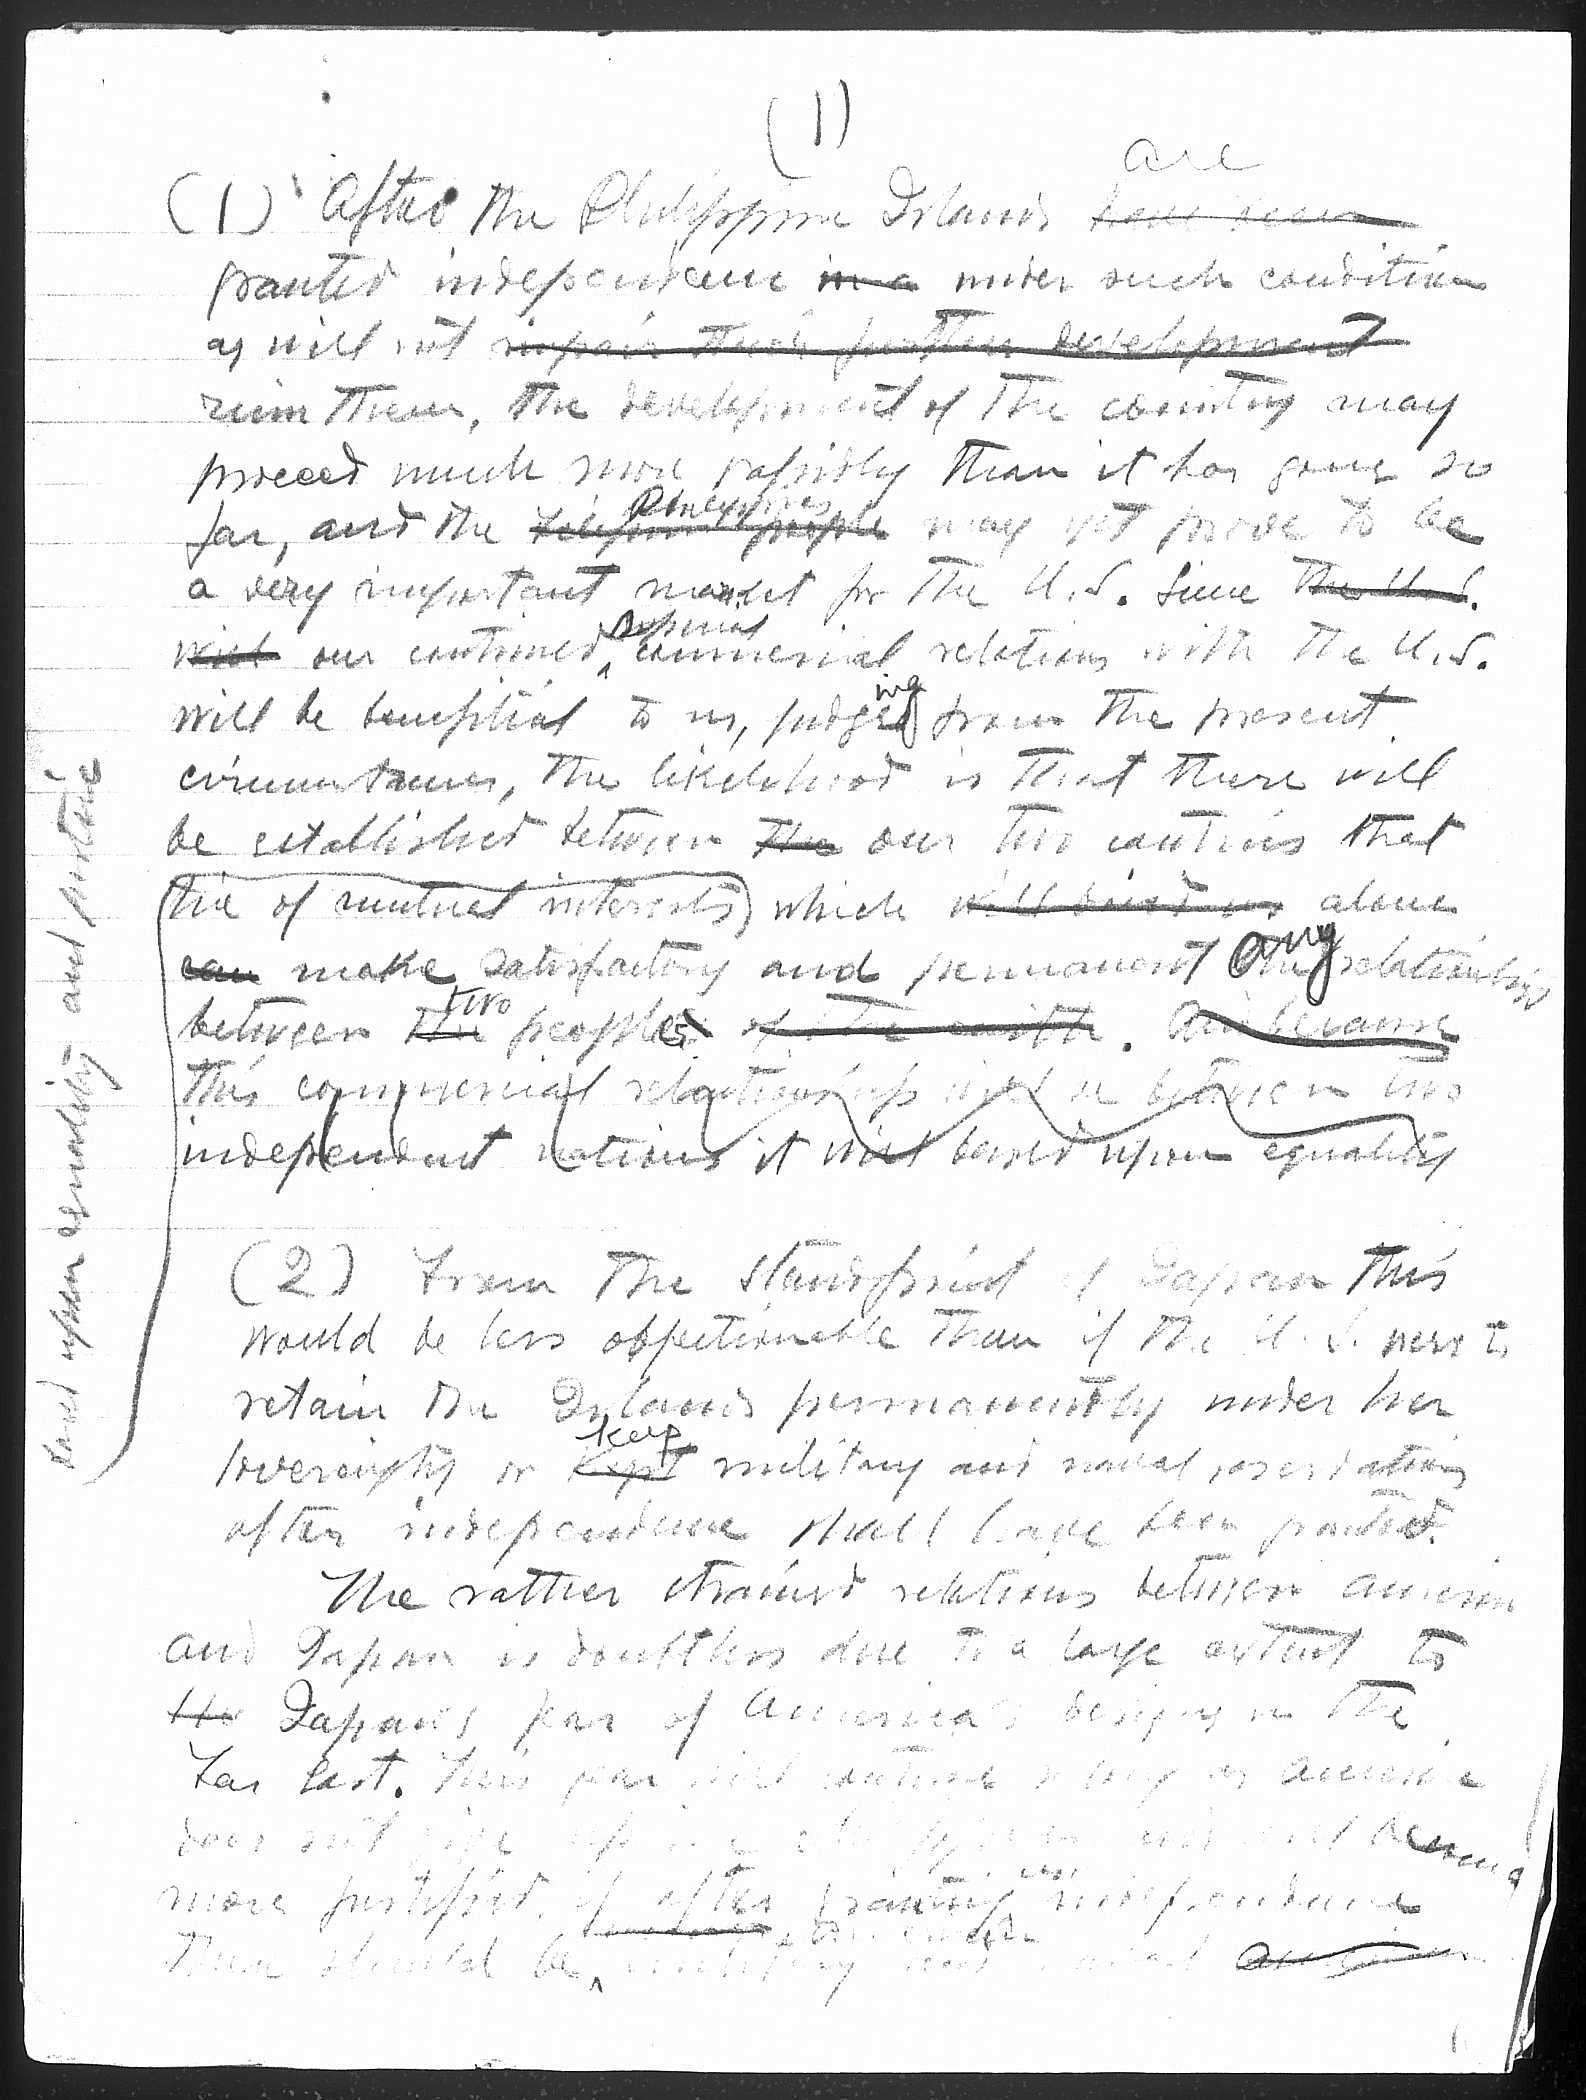 (1)
are
(1) After the Philippine Islands have been
granted independence in a under such conditions
as will not impair their further development
ruin them, the development of the country may
proceed much more rapidly than it has gone so
Philippines
far, and the Filipino people may yet prove to be
a very important market for the U.S. Since the U.S.
will our continued commercial relations with the U.S.
ing
will be beneficial to us, judged from the present
circumstances, the likelihood is that there will
be established between the our two countries that
tie of mutual interests, which will bind us alone
any
can make satisfactory and permanent the relationship
two
between the peoples of the earth. And because
this commercial relationship will be between two
independent nations it will based upon equality
based upon equality and justice
(2) From the standpoint of Japan this
would be less objectionable than if the U.S. were to
retain the Islands permanently under her
keep
sovereignty or kept military and naval reservations
after independence shall have been granted.
The rather strained relations between America
and Japan is doubtless due to a large extent to
the Japan's fear of America's designs in the
Far East. This fear will continue so long as America
does not give up and will become
more justified, if after granting independence
there should be military and naval